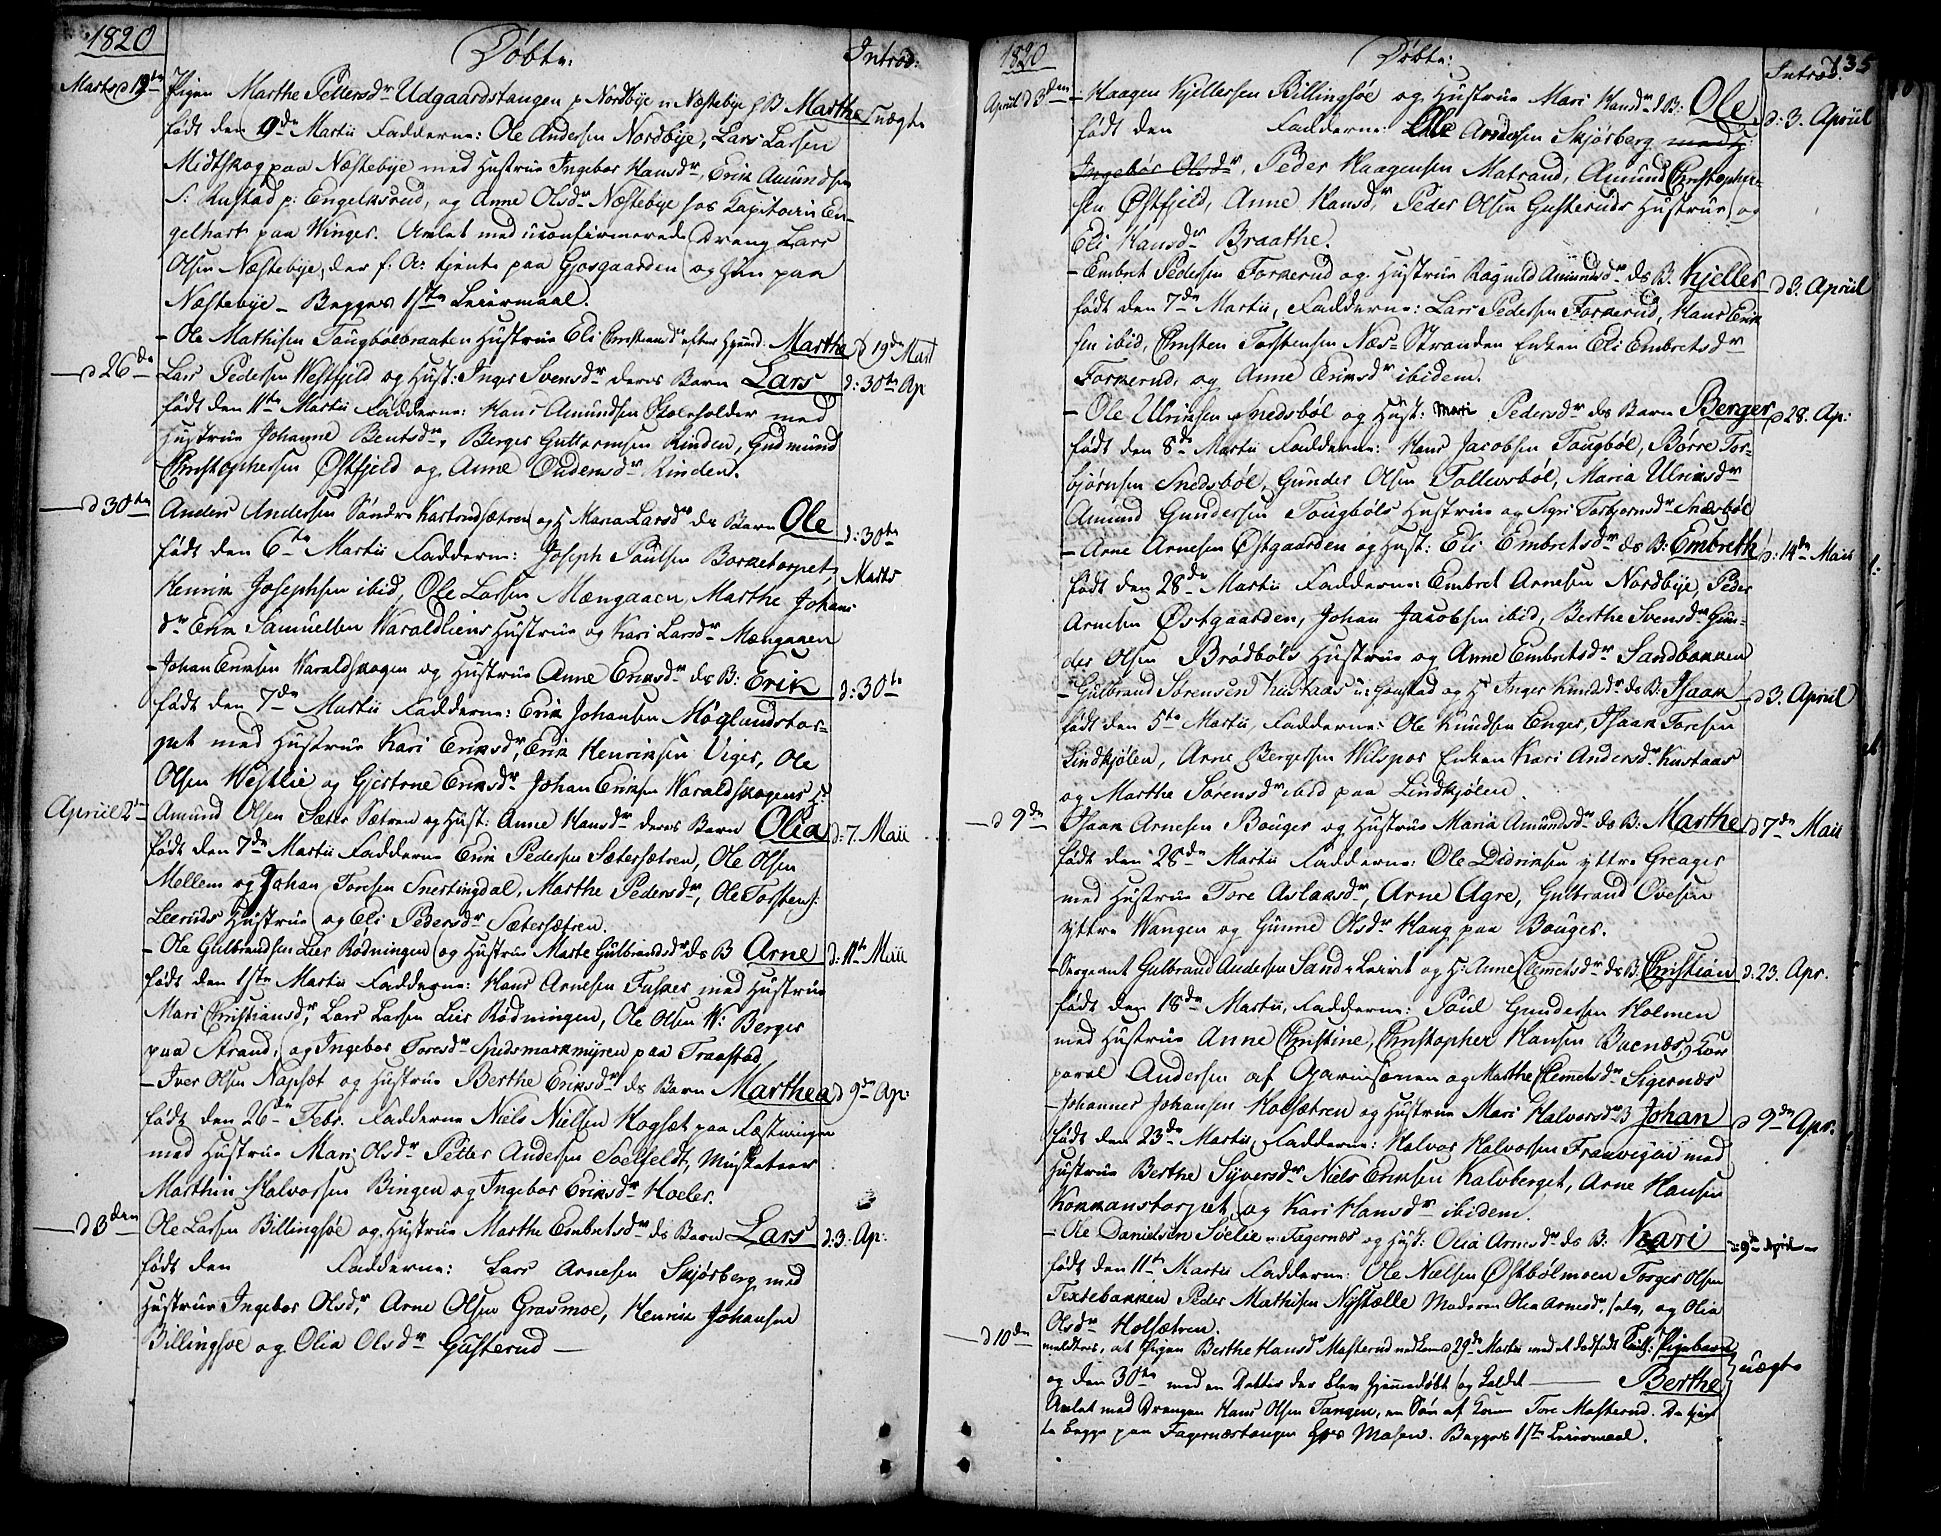 1820
Døbte:
Introd:
Marts d 19de Pigen Marthe Pettersdr Udgaardstangen p Nordbye u Næstebye s: B. Marthe uægte
født den 9de Martii Fadderne: Ole Andersen Nordbye, Lars Larsen
Midtskog paa Næstebye med Hustrue Ingebor Hansdr, Erik Amundsen
S: Rustad p: Engelksrud, og Anne Olsdr Næstebye hos Kapitain En-
gelhart paa Winger. Avlet med uconfirmerede Dreng Lars
Olsen Næstebye, der f: A: tjente paa Gjosgaarden og hun paa
Næstebye – Begges 1ste Leiermaal.
– Ole Mathisen Tougbølbraaten Hustrue Eli Christiansdr efter Hjemd: Marthe d 19de Mart
– d 26de Lars Pedersen Westfjeld og Hust: Inger Svensdr deres Barn Lars d: 30te Ap
født den 11te Martii Fadderne: Hans Amundsen Skoleholder med
Hustrue Johanne Bentsdr, Berger Guttormsen Linden, Gudmund
Christophersen Østfjeld og Anne Oudensdr Linden.
– d 30te Anders Andersen Søndre Kartrudsætren og H: Maria Larsdr ds Barn Ole d: 30te
født den 6te Martii Fadderne: Joseph Paulsen Borretorpet, Marts
Henrik Josephsen ibid, Ole Larsen Mængaaen Marthe Johans
dr Erik Samuelsen Waraldliens Hustrue og Kari Larsdr Mængaaen
– Johan Eriksen Waraldskogen og Hustrue Anne Eriksdr ds B: Erik d: 30te
født den 7de Martii Fadderne: Erik Johansen Møglundstor-
pet med Hustrue Kari Eriksdr, Erik Henriksen Viger, Ole
Olsen Westlie og Gjertrue Eriksdr Johan Eriksen Waraldskogens H:
Apriil 2den Amund Olsen Sæter Sætren og Hust: Anne Hansdr deres Barn Olia d: 7. Maii
født den 7de Martii Fadderne Erik Pedersen Sætersætren, Ole Olsen
Mellem og Johan Toresen Snertingdal, Marthe Pedersdr, Ole Torstens:
Leeruds Hustrue og Eli Pedersdr Sætersætren.
– Ole Gulbrandsen Lier Rødningen og Hustrue Marte Gulbrandsdr ds B Arne d: 11te Maii
født den 1ste Martii Fadderne: Hans Arnesen Fusker med Hustrue
Mari Christiansdr, Lars Larsen Lier Rødningen, Ole Olsen W: Berger
paa Strand, og Ingebor Toresdr Spidsmarkmyren paa Traastad
– Iver Olsen Napset og Hustrue Berthe Eriksdr ds Barn Marthea d 9de Ap:
født den 26de Febr. Fadderne Niels Nielsen Hogset paa Fæstningen
med Hustrue Mari Olsdr Petter Andersen Soelfeldt, Musketeer
Marthin Halvorsen Bingen og Ingebor Eriksdr Hoeler.
– d 3den Ole Larsen Billingsøe og Hustrue Marthe Embretsdr ds Barn Lars d: 3: Ap:
født den Fadderne: Lars Arnesen Skjørberg med
Hustrue Ingebor Olsdr, Arne Olsen Grasmoe, Henrik Johansen
Billingsøe og Olia Olsdr Gusterud –
1820
Døbte:
Introd:
135
Apriil d 3den – Haagen Kjellersen Billingsøe og Hustrue Mari Hansdr ds B: Ole d: 3. Apriil
født den Fadderne: Ole Arnesen Skjørberg med H:
Ingebor Olsdr, Peder Haagensen Matrand, Amund Christopher-
sen Østfjeld, Anne Hansdr, Peder Olsen Gusteruds Hustrue og
Eli Hansdr Braathe.
– Embret Pedersen Forkerud og Hustrue Ragnild Amundsdr ds B. Kjelles d 3. Apriil
født den 7de Martii, Fadderne: Lars Pedersen Forkerud, Hans Erik
sen ibid, Christen Torstensen Næs-Stranden Enken Eli Embretsdr
Forkerud, og Anne Eriksdr ibidem.
– Ole Ulriksen Snedsbøl og Hust: Mari Pedersdr ds Barn Berger d 28. Ap:
født den 8de Martii Fadderne: Hans Jacobsen Tougbøl, Børre Tor-
bjørnsen Snedsbøl, Gunder Olsen Tollevsbøl, Maria Ulriksdr
Amund Gundersen Tougbøls Hustrue og Sigri Torbjørnsdr Snædsbøl
– Arne Arnesen Østgaarden og Hust: Eli Embretsdr ds B: Embreth d: 14de Maii
født den 28de Martii Fadderne: Embret Arnesen Nordbye, Peder
Arnesen Østgaarden, Johan Jacobsen ibid, Berthe Svensdr Gun-
der Olsen Brødbøls Hustrue og Anne Embretsdr Sandbakken
– Gulbrand Sørensen Kustaas u: Gaustad og H: Inger Knudsdr ds B: Isaak d 3. Apriil
født den 5te Martii Fadderne: Ole Knudsen Enger, Isaak Toresen
Lindkjølen, Arne Bergersen Wilspor Enken Kari Andersdr Kustaas
og Marthe Sørensdr ibid paa Lindkjølen
– d 9de Isaak Arnesen Bouger og Hustrue Maria Amundsdr ds B: Marthe d 7de Maii
født den 28de Martii Fadderne: Ole Didriksen yttre Greager
med Hustrue Tore Aslaksdr, Arne Agre, Gulbrand Ovesen
yttre Wangen og Gunne Olsdr Haug paa Bouger.
– Sergeant Gulbrand Andersen Sand Leiret og H: Anne Clemetsdr ds B: Christian d: 23. Apr.
født den 18de Martii, Fadderne: Paul Gundersen Holmen
med Hustrue Anne Christine, Christopher Hansen Buenæs, Kor
poral Andersen af Garnisonen og Marthe Clemetsdr Sigernæs
– Johannes Johansen Holsætren og Hustrue Mari Halvorsdr B Johan d 9de Apr.
født den 23de Martii, Fadderne: Halvor Halvorsen Franvigen med
Hustrue Berthe Syversdr Niels Eriksen Kalvberget, Arne Hansen
Korkanstorpet og Kari Hansdr ibidem.
– Ole Danielsen Søelie u: Fagernæs og Hust: Olia Arnesdr ds B: Kari d: 9de Apriil
født den 11te Martii Fadderne: Ole Nielsen Østbølmoen Torger Olsen
Textebakken Peder Mathisen Nystælle Moderen Olia Arnesdr selv, og Olia
Olsdr Holsætren.
– d 10de meldtes, at Pigen Berthe Hansdr Masterud nedkom d 29de Martii med et dødfødt Pigebarn
og den 30te med en Datter der blev hjemmedøbt og kaldet – Berthe uægte
Avlet med Drengen Hans Olsen Tangen, en Søn af Kone Tore Masterud. De tjen-
te begge paa Fagernæstangen hos Mosen. Begges 1ste Leiermaal.